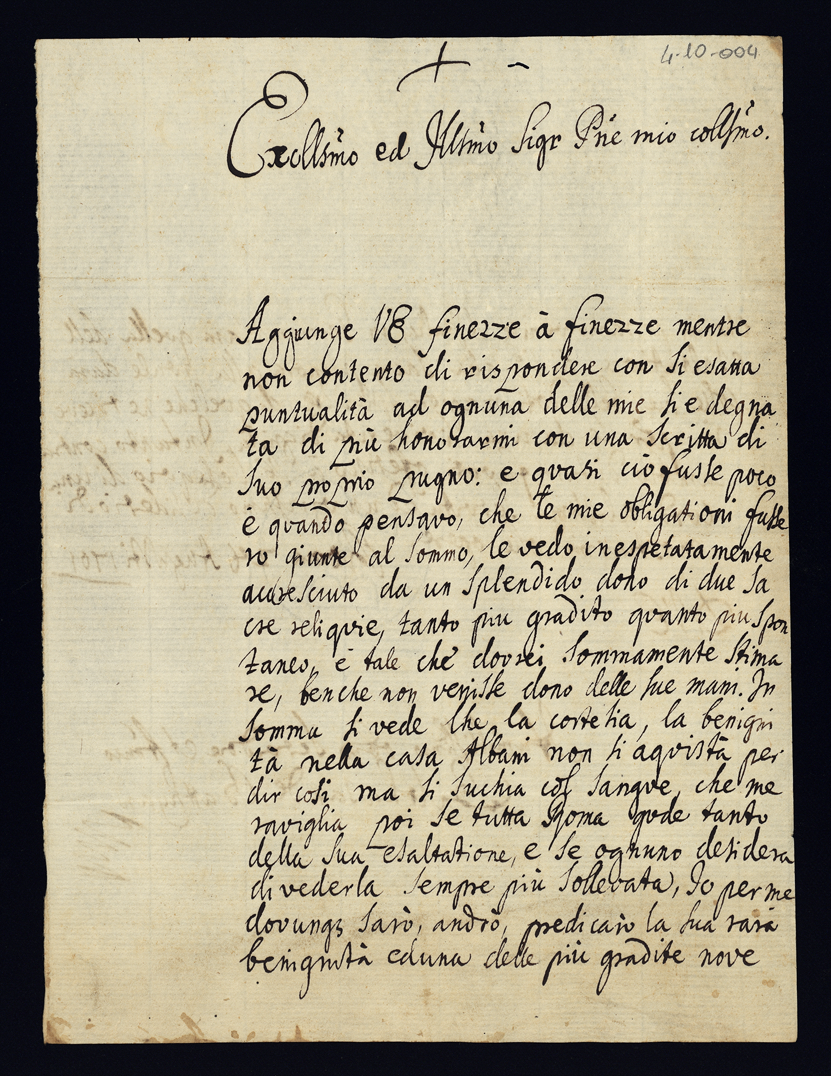 4-10-004
Excllsmo ed Illsmo Sigr Prne mio collsmo.
Aggiunge VS finezze à finezze mentre
non contento di rispondere con si esatta
puntualità ad ognuna delle mie si e degna
ta di più honorarmi con una scritta di
suo proprio pugno: e quasi ciò fusse poco
e quando pensavo, che le mie obligationi fusse
ro giunte al sommo, le vedo inespetatamente
accresciuto da un splendido dono di due sa
cre reliquie, tanto piu gradito quanto piu spon
taneo, e tale che dovrei sommamente stima
re, benche non venisse dono delle sue mani. In
somma si vede che la cortesia, la benigni
tà nella casa Albani non si aquista per
dir così ma si suchia col sangue, che me
raviglia poi se tutta Roma gode tanto
della sua esaltatione, e se ognuno desidera
di vederla sempre più sollevata, Io per me
dovunqz sarò, andrò, predicarò la sua rara
benignità ed una delle più gradite nove